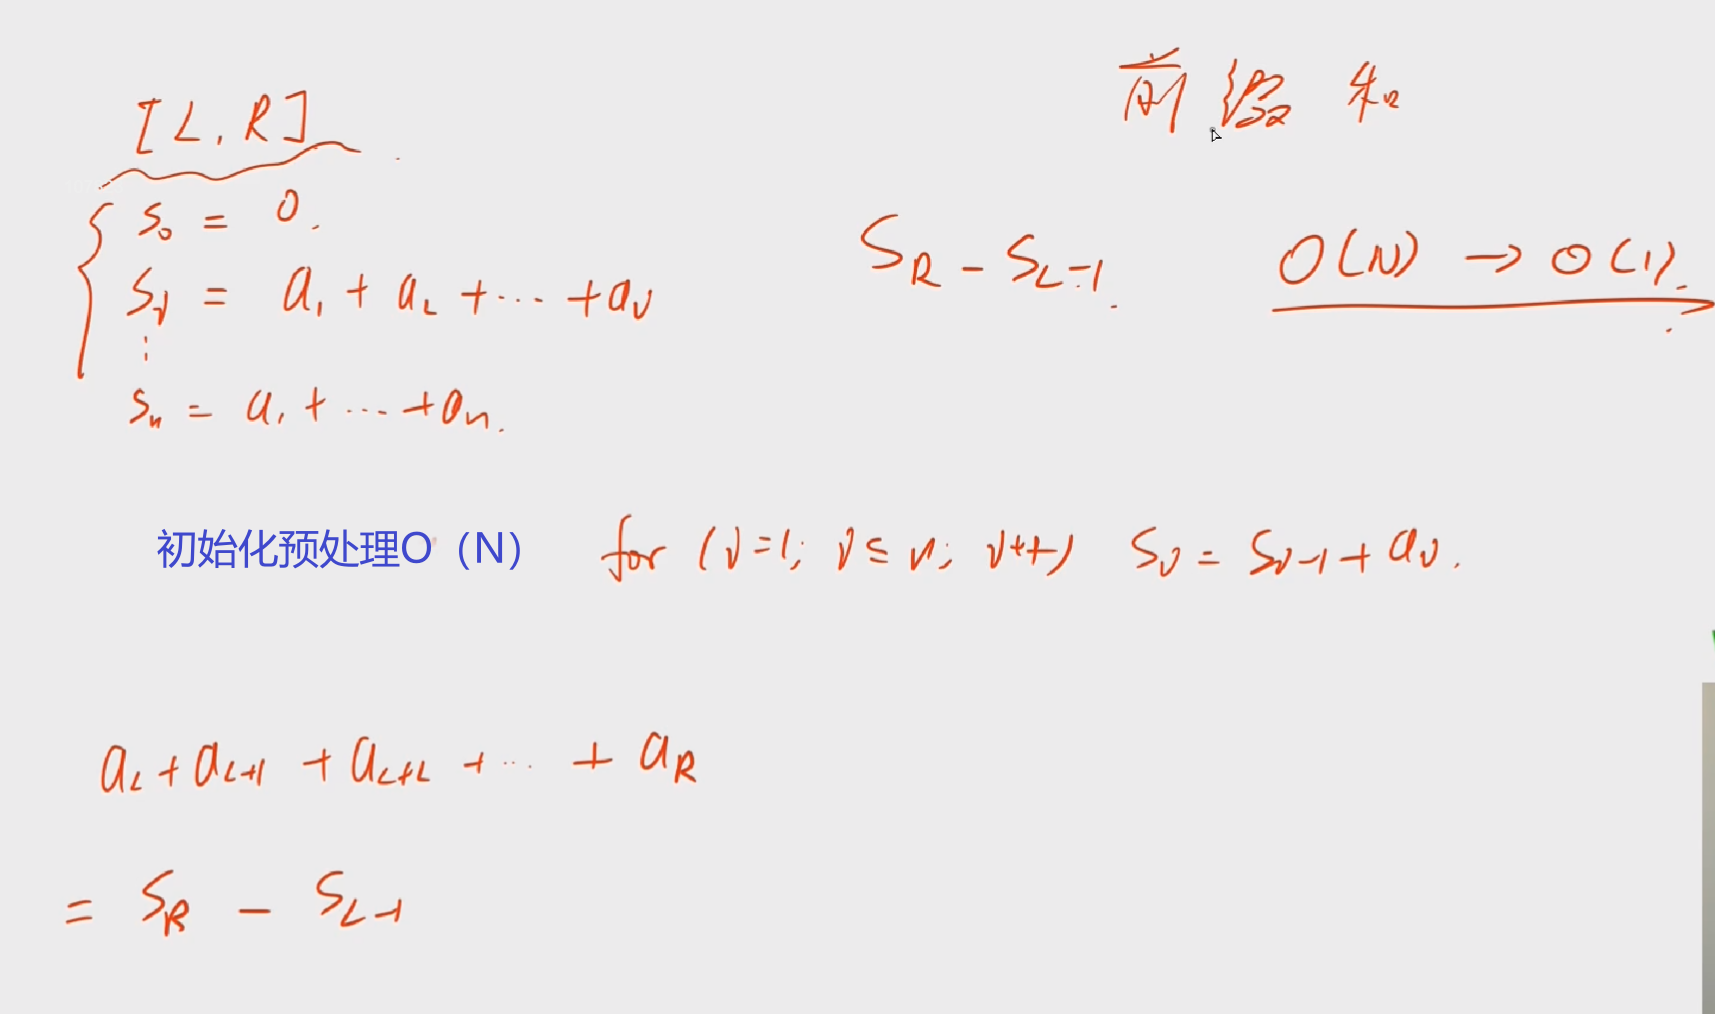 前缀和
[L, R]
S₀ = 0.
Sᵢ = a₁ + a₂ + ... + aᵢ
⋮
Sₙ = a₁ + ... + aₙ.
S_R - S_{L-1}.
O(N) → O(1).
初始化预处理O（N） for (i=1; i≤n; i++) Sᵢ = Sᵢ₋₁ + aᵢ.
a_L + a_{L+1} + a_{L+2} + ... + a_R
= S_R - S_{L-1}